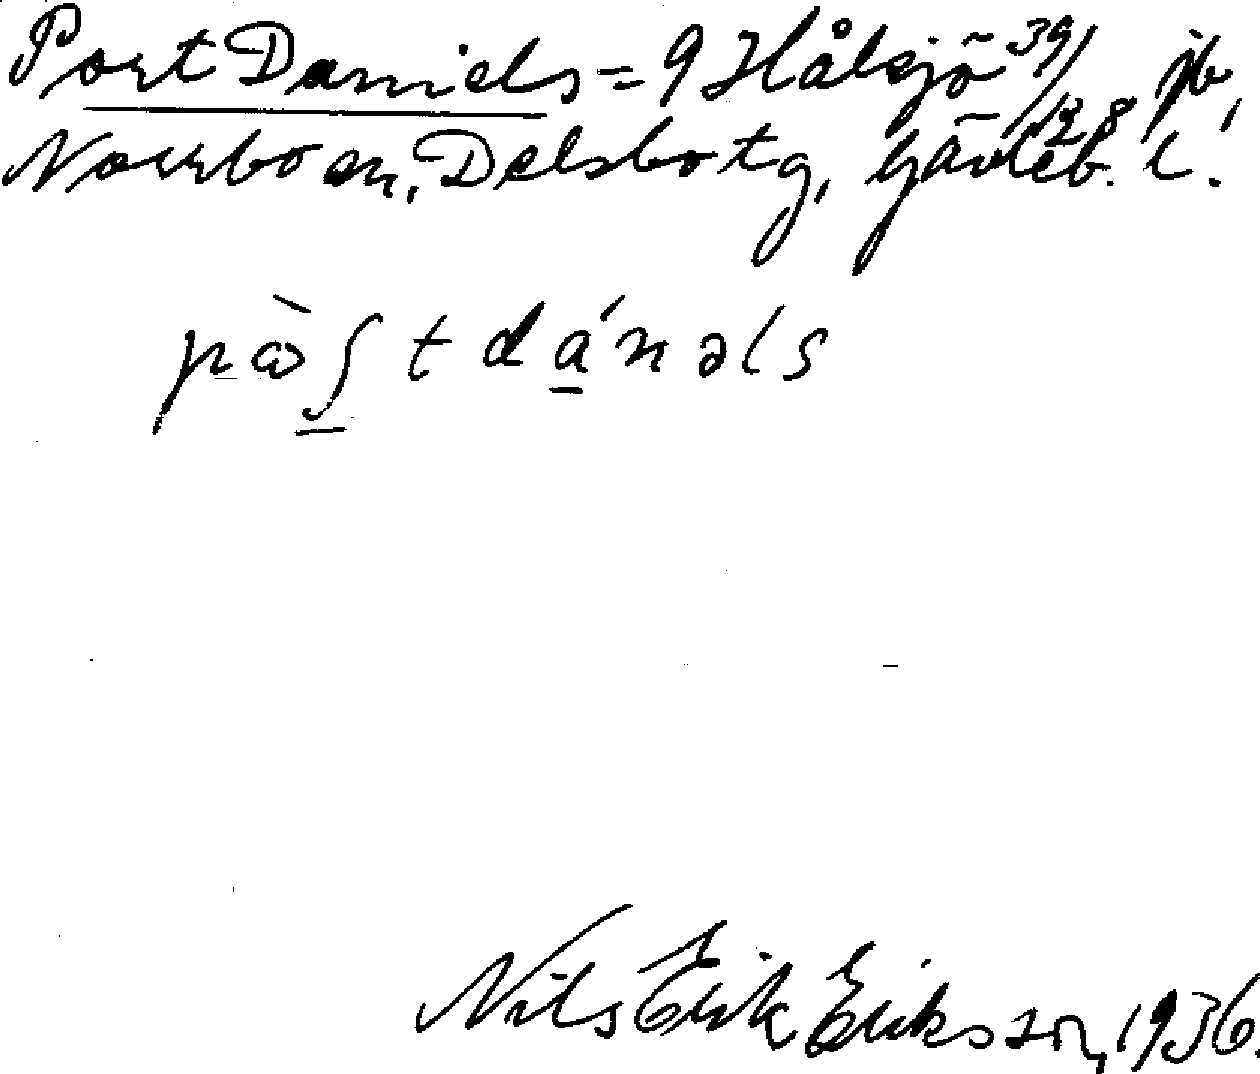 Port Daniels = 9 Hålsjö 39/128 jb,
Norrbo sn, Delsbo tg, Gävleb. l.
pὼʃt dánəls
Nils Erik Eriksson, 1936.